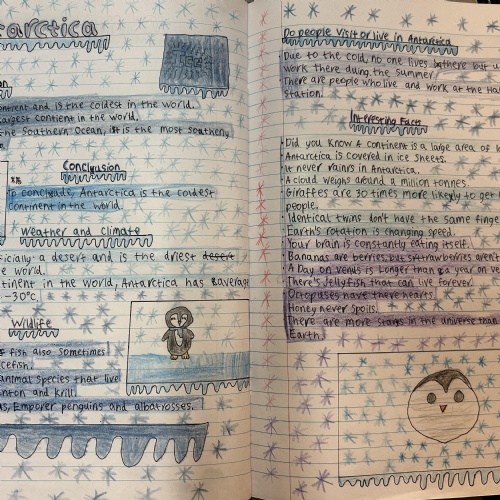 arctica
Ice
on
ontinent and is the coldest in the world.
largest contient in the world.
the Southern Ocean, it is the most southerly
e.
Conclusion
To concluads, Antarctica is the coldest
continent in the world.
Weather and climate
ficially a desert and is the driest desert
e world.
tinent in the world, Antarctica has average
-30°c.
Wildlife
fish also sometimes
icefish.
animal species that live
nkton and Krill.
as, Emporer penguins and albatrosses.
Do people Visit or live in Antarctica
Due to the cold, no one lives there but
work there duing the summer.
There are people who live and work at the Hal
Station.
Interesting Facts
Did you know A continent is a large area of
Antarctica is covered in ice sheets.
It never rains in Antarctica.
A cloud weighs around a million tonnes.
Giraffes are 30 times more likely to get
people.
Identical twins don't have the same finge
Earth's rotation is changing speed.
Your brain is constantly eating itself.
Bananas are berries but strawberries aren't
A Day on Venus is longer than a year on Ve
There's Jellyfish that can live forever.
Octopuses have three hearts.
Honey never spoils.
There are more stares in the universe than
Earth.